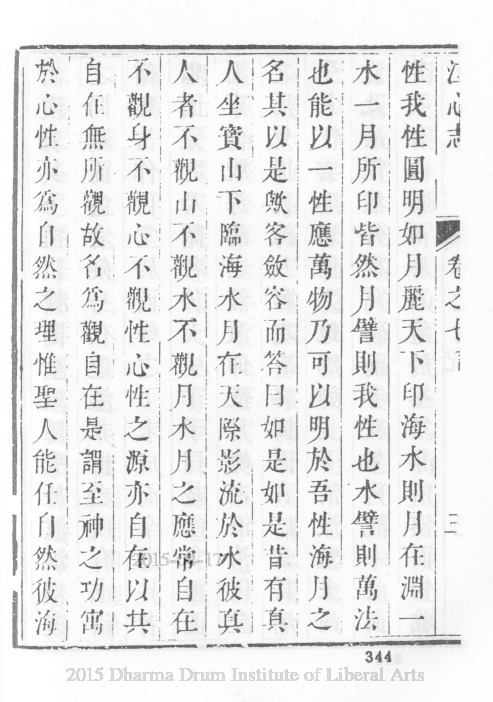 江心志 卷之七記 三
性我性圓明如月麗天下印海水則月在淵一
水一月所印皆然月譬則我性也水譬則萬法
也能以一性應萬物乃可以明於吾性海月之
名其以是歟客斂容而答曰如是如是昔有真
人坐寶山下臨海水月在天際影流於水彼真
人者不觀山不觀水不觀月水月之應常自在
不觀身不觀心不觀性心性之源亦自在以其
自在無所觀故名為觀自在是謂至神之功寓
於心性亦為自然之理惟聖人能任自然彼海
344
2015 Dharma Drum Institute of Liberal Arts